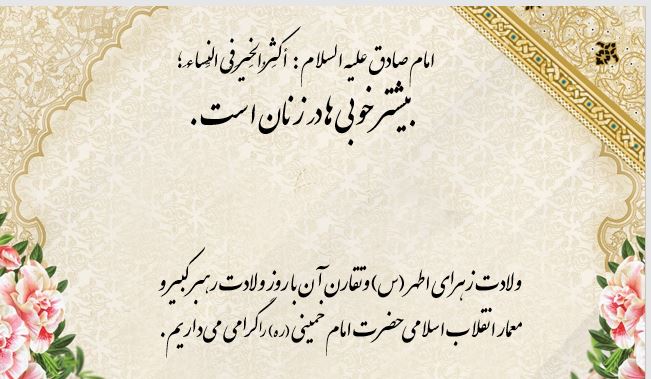 امام صادق علیه السلام : أکثرُ الخیر فی النِساءِ؛
بیشتر خوبی ها در زنان است.
ولادت زهرای اطهر (س) و تقارن آن با روز ولادت رهبر کبیر و
معمار انقلاب اسلامی حضرت امام خمینی (ره) را گرامی می داریم.